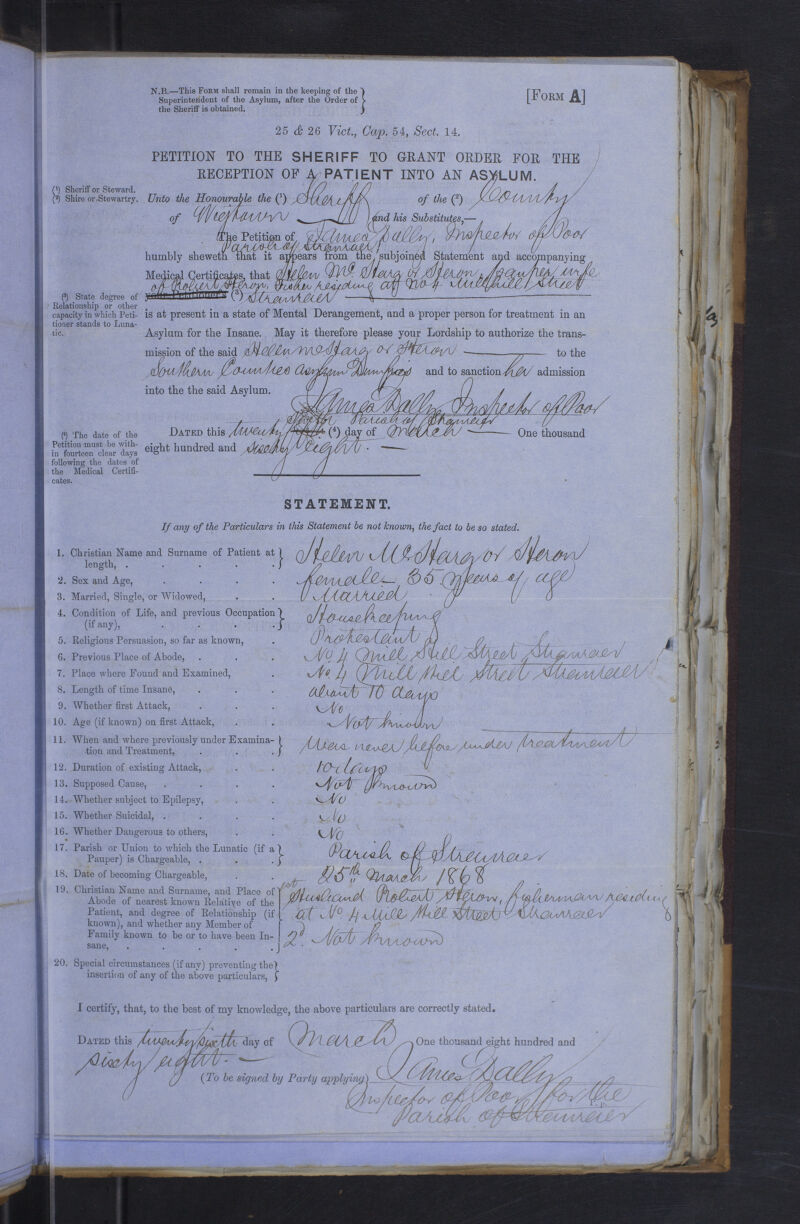 N.B.—This Form shall remain in the keeping of the
Superintendent of the Asylum, after the Order of
the Sheriff is obtained.
[Form A]
25 & 26 Vict., Cap. 54, Sect. 14.
PETITION TO THE SHERIFF TO GRANT ORDER FOR THE
RECEPTION OF A PATIENT INTO AN ASYLUM.
(¹) Sheriff or Steward.
(²) Shire or Stewartry.
Unto the Honourable the (¹) Sheriff of the (²) County
of Wigtown and his Substitutes,—
The Petition of James Dally, Inspector of Poor
Parish of Stranraer,
humbly sheweth that it appears from the subjoined Statement and accompanying
Medical Certificates, that Helen McHarg or Heron, pauper, wife
of Robert Heron, Fisher residing at No 4 Mill hill Street
(³) Stranraer
(³) State degree of
Relationship or other
capacity in which Peti-
tioner stands to Luna-
tic.
is at present in a state of Mental Derangement, and a proper person for treatment in an
Asylum for the Insane. May it therefore please your Lordship to authorize the trans-
mission of the said Helen McHarg or Heron to the
Southern Counties Asylum Dumfries and to sanction her admission
into the the said Asylum.
James Dally, Inspector of Poor
Parish of Stranraer
(⁴) The date of the
Petition must be with-
in fourteen clear days
following the dates of
the Medical Certifi-
cates.
Dated this twenty sixth (⁴) day of March One thousand
eight hundred and sixty eight.
STATEMENT.
If any of the Particulars in this Statement be not known, the fact to be so stated.
1. Christian Name and Surname of Patient at length, Helen McHarg or Heron
2. Sex and Age, female 35 years of age
3. Married, Single, or Widowed, Married
4. Condition of Life, and previous Occupation (if any), Housekeeping
5. Religious Persuasion, so far as known, Protestant
6. Previous Place of Abode, No 4 Mill Hill Street Stranraer
7. Place where Found and Examined, No 4 Mill Hill Street Stranraer
8. Length of time Insane, about 10 days
9. Whether first Attack, No
10. Age (if known) on first Attack, Not known
11. When and where previously under Examina-
tion and Treatment, Was never before under treatment
12. Duration of existing Attack, 10 days
13. Supposed Cause, Not known
14. Whether subject to Epilepsy, No
15. Whether Suicidal, No
16. Whether Dangerous to others, No
17. Parish or Union to which the Lunatic (if a
Pauper) is Chargeable, Parish of Stranraer
18. Date of becoming Chargeable, 25th March 1868
19. Christian Name and Surname, and Place of
Abode of nearest known Relative of the
Patient, and degree of Relationship (if
known), and whether any Member of
Family known to be or to have been In-
sane,
1st Husband Robert Heron, fisherman residing
at No 4 Mill Hill Street Stranraer
2d Not known
20. Special circumstances (if any) preventing the
insertion of any of the above particulars,
I certify, that, to the best of my knowledge, the above particulars are correctly stated.
Dated this twenty sixth day of March One thousand eight hundred and
sixty eight.
(To be signed by Party applying) James Dally
Inspector of Poor for the
Parish of Stranraer